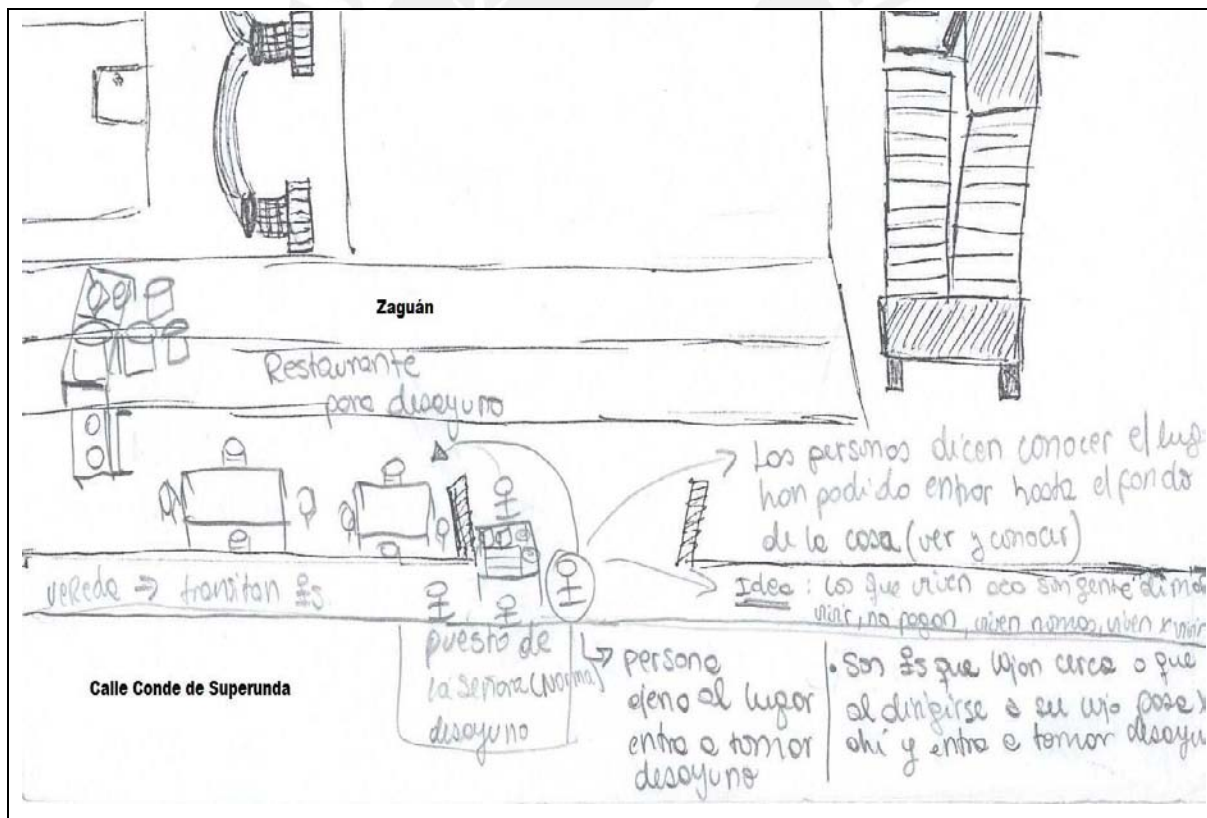 Zaguán
Restaurante
para desayuno
Las personas dicen conocer el
han podido entrar hasta el fondo
de la casa (ver y conocer)
vereda ⇒ transitan
Idea : los que viven acá son gente de mal
vivir, no pagan, viven nomás, viven x vivir
puesto de
la Señora (Norma)
desayuno
Calle Conde de Superunda
persona
ajena al lugar
entra a tomar
desayuno
• Son que cerca o que
al dirigirse a su pasa x
ahí y entra a tomar